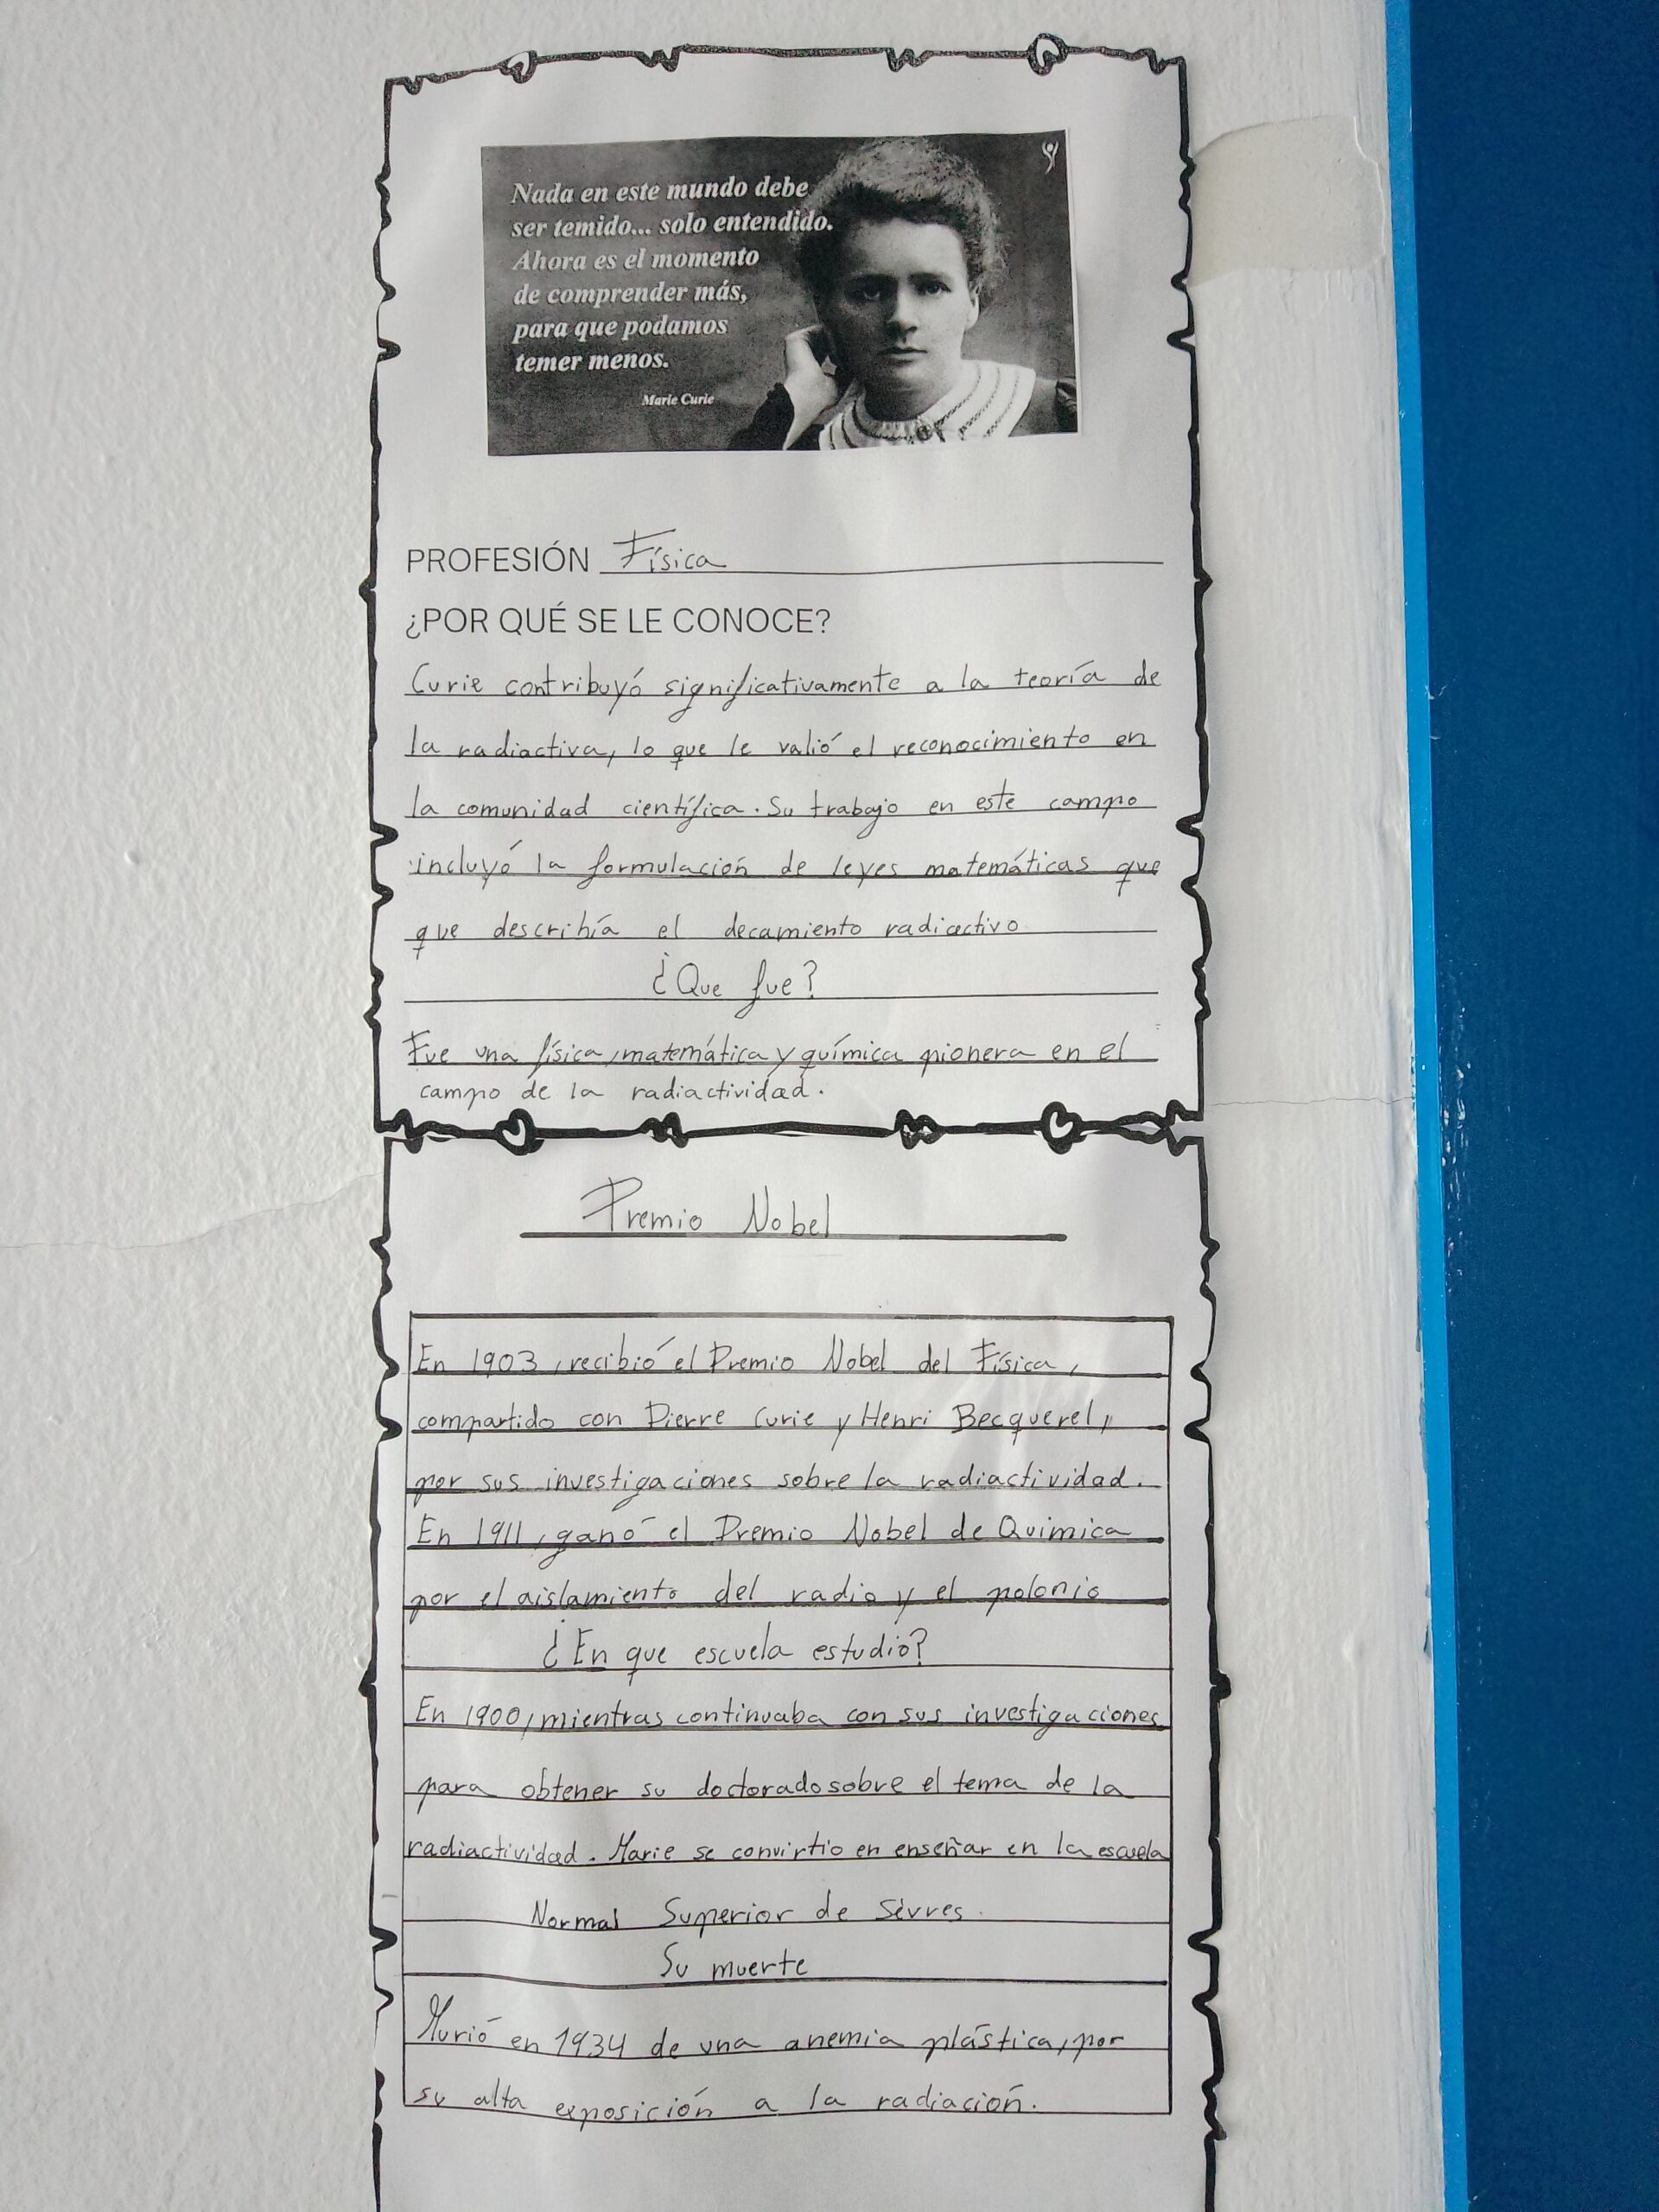 Nada en este mundo debe
ser temido... solo entendido.
Ahora es el momento
de comprender más,
para que podamos
temer menos.
Marie Curie
PROFESIÓN Física
¿POR QUÉ SE LE CONOCE?
Curie contribuyó significativamente a la teoría de
la radiactiva, lo que le valió el reconocimiento en
la comunidad científica. Su trabajo en este campo
incluyó la formulación de leyes matemáticas que
que describía el decamiento radiactivo
¿Que fue?
Fue una física, matemática y química pionera en el
campo de la radiactividad.
Premio Nobel
En 1903, recibió el Premio Nobel del Física,
compartido con Pierre Curie y Henri Becquerel,
por sus investigaciones sobre la radiactividad.
En 1911, ganó el Premio Nobel de Quimica
por el aislamiento del radio y el polonio
¿En que escuela estudio?
En 1900, mientras continuaba con sus investigaciones
para obtener su doctorado sobre el tema de la
radiactividad. Marie se convirtio en enseñar en la escuela
Normal Superior de Sèvres.
Su muerte
Murió en 1934 de una anemia plástica, por
su alta exposición a la radiación.